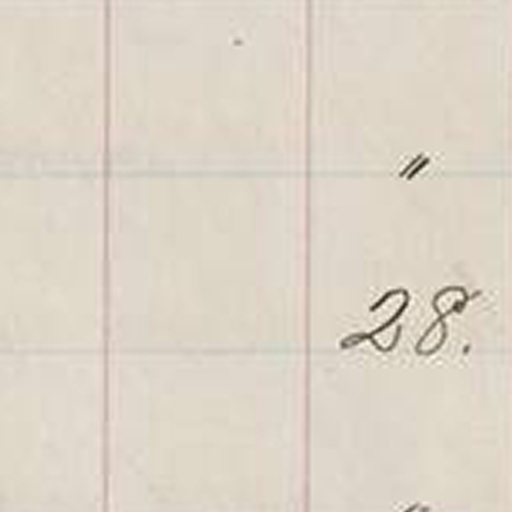 〃
28.